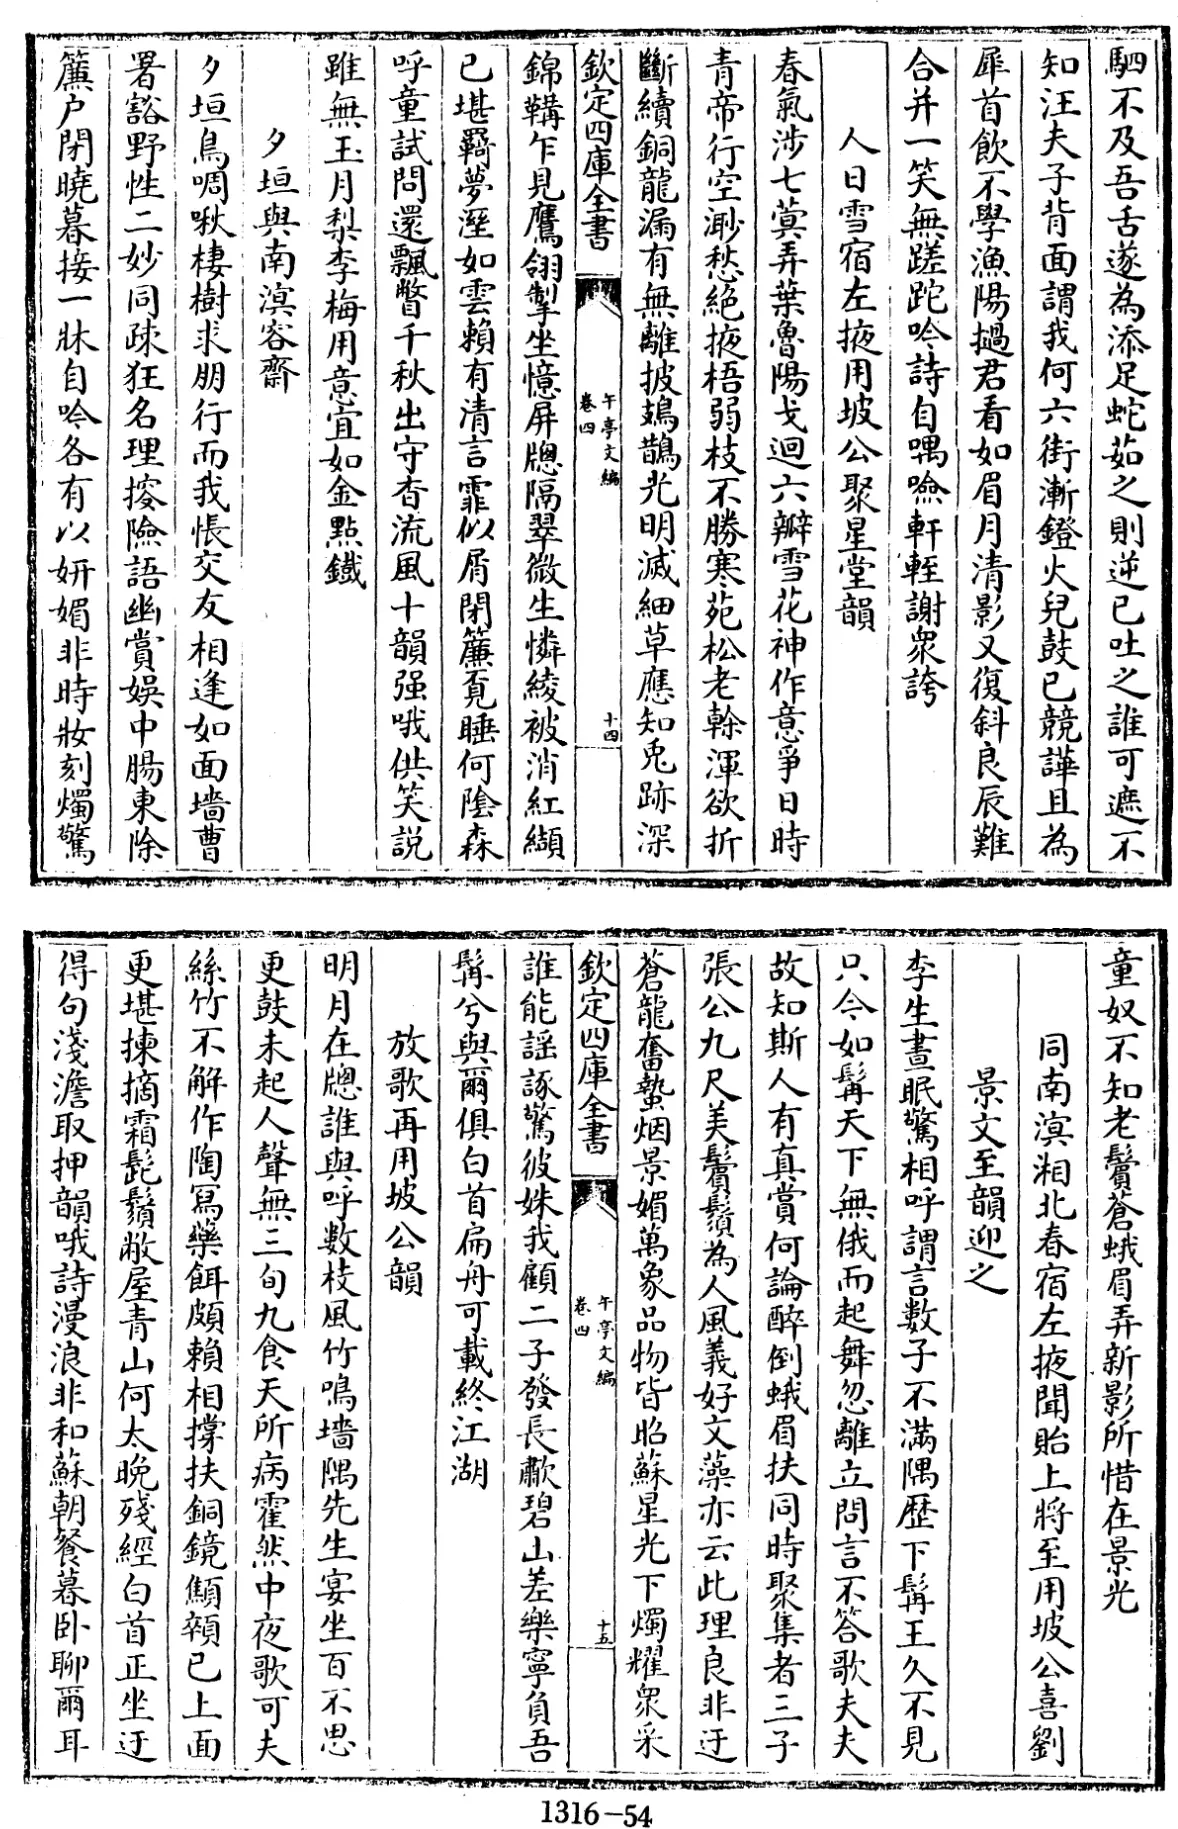 駟不及吾舌遂為添足蛇茹之則逆已吐之誰可遮不
知汪夫子背面謂我何六街漸鐙火兒鼓已競譁且為
犀首飲不學漁陽撾君看如眉月清影又復斜良辰難
合并一笑無蹉跎吟詩自喁噞軒輊謝衆誇
人日雪宿左掖用坡公聚星堂韻
春氣涉七蓂弄葉魯陽戈迴六瓣雪花神作意爭日時
青帝行空渺愁絕掖梧弱枝不勝寒苑松老榦渾欲折
斷續銅龍漏有無離披鳷鵲光明滅細草應知兎跡深
欽定四庫全書
午亭文編
卷四
十四
錦韝乍見鷹翎掣坐憶屏牎隔翠微生憐綾被消紅纈
已堪羇夢溼如雲賴有清言霏似屑閉簾覔睡何陰森
呼童試問還飄瞥千秋出守杳流風十韻强哦供笑説
雖無玉月梨李梅用意宜如金點鐵
夕垣與南溟客齋
夕垣鳥啁啾棲樹求朋行而我悵交友相逢如面墻曹
署豁野性二妙同疎狂名理接險語幽賞娛中腸東除
簾户閉曉暮接一牀自吟各有以妍媚非時妝刻燭驚
童奴不知老鬢蒼蛾眉弄新影所惜在景光
同南溟湘北春宿左掖聞貽上將至用坡公喜劉
景文至韻迎之
李生晝眠驚相呼謂言數子不滿隅歴下髯王久不見
只今如髯天下無俄而起舞忽離立問言不答歌夫夫
故知斯人有真賞何論醉倒蛾眉扶同時聚集者三子
張公九尺美鬢鬚為人風義好文藻亦云此理良非迂
蒼龍奮蟄烟景媚萬象品物皆昭蘇星光下燭耀衆采
欽定四庫全書
午亭文編
卷四
十五
誰能謡諑驚彼姝我顧二子發長歗碧山差樂寧負吾
髯兮與爾俱白首扁舟可載終江湖
放歌再用坡公韻
明月在牎誰與呼數枝風竹鳴墻隅先生宴坐百不思
更鼓未起人聲無三旬九食天所病霍然中夜歌可夫
絲竹不解作陶冩藥餌頗賴相撐扶銅鏡顦顇已上面
更堪揀摘霜髭鬚敝屋青山何太晚殘經白首正坐迂
得句淺澹取押韻哦詩漫浪非和蘇朝餐暮卧聊爾耳
1316-54